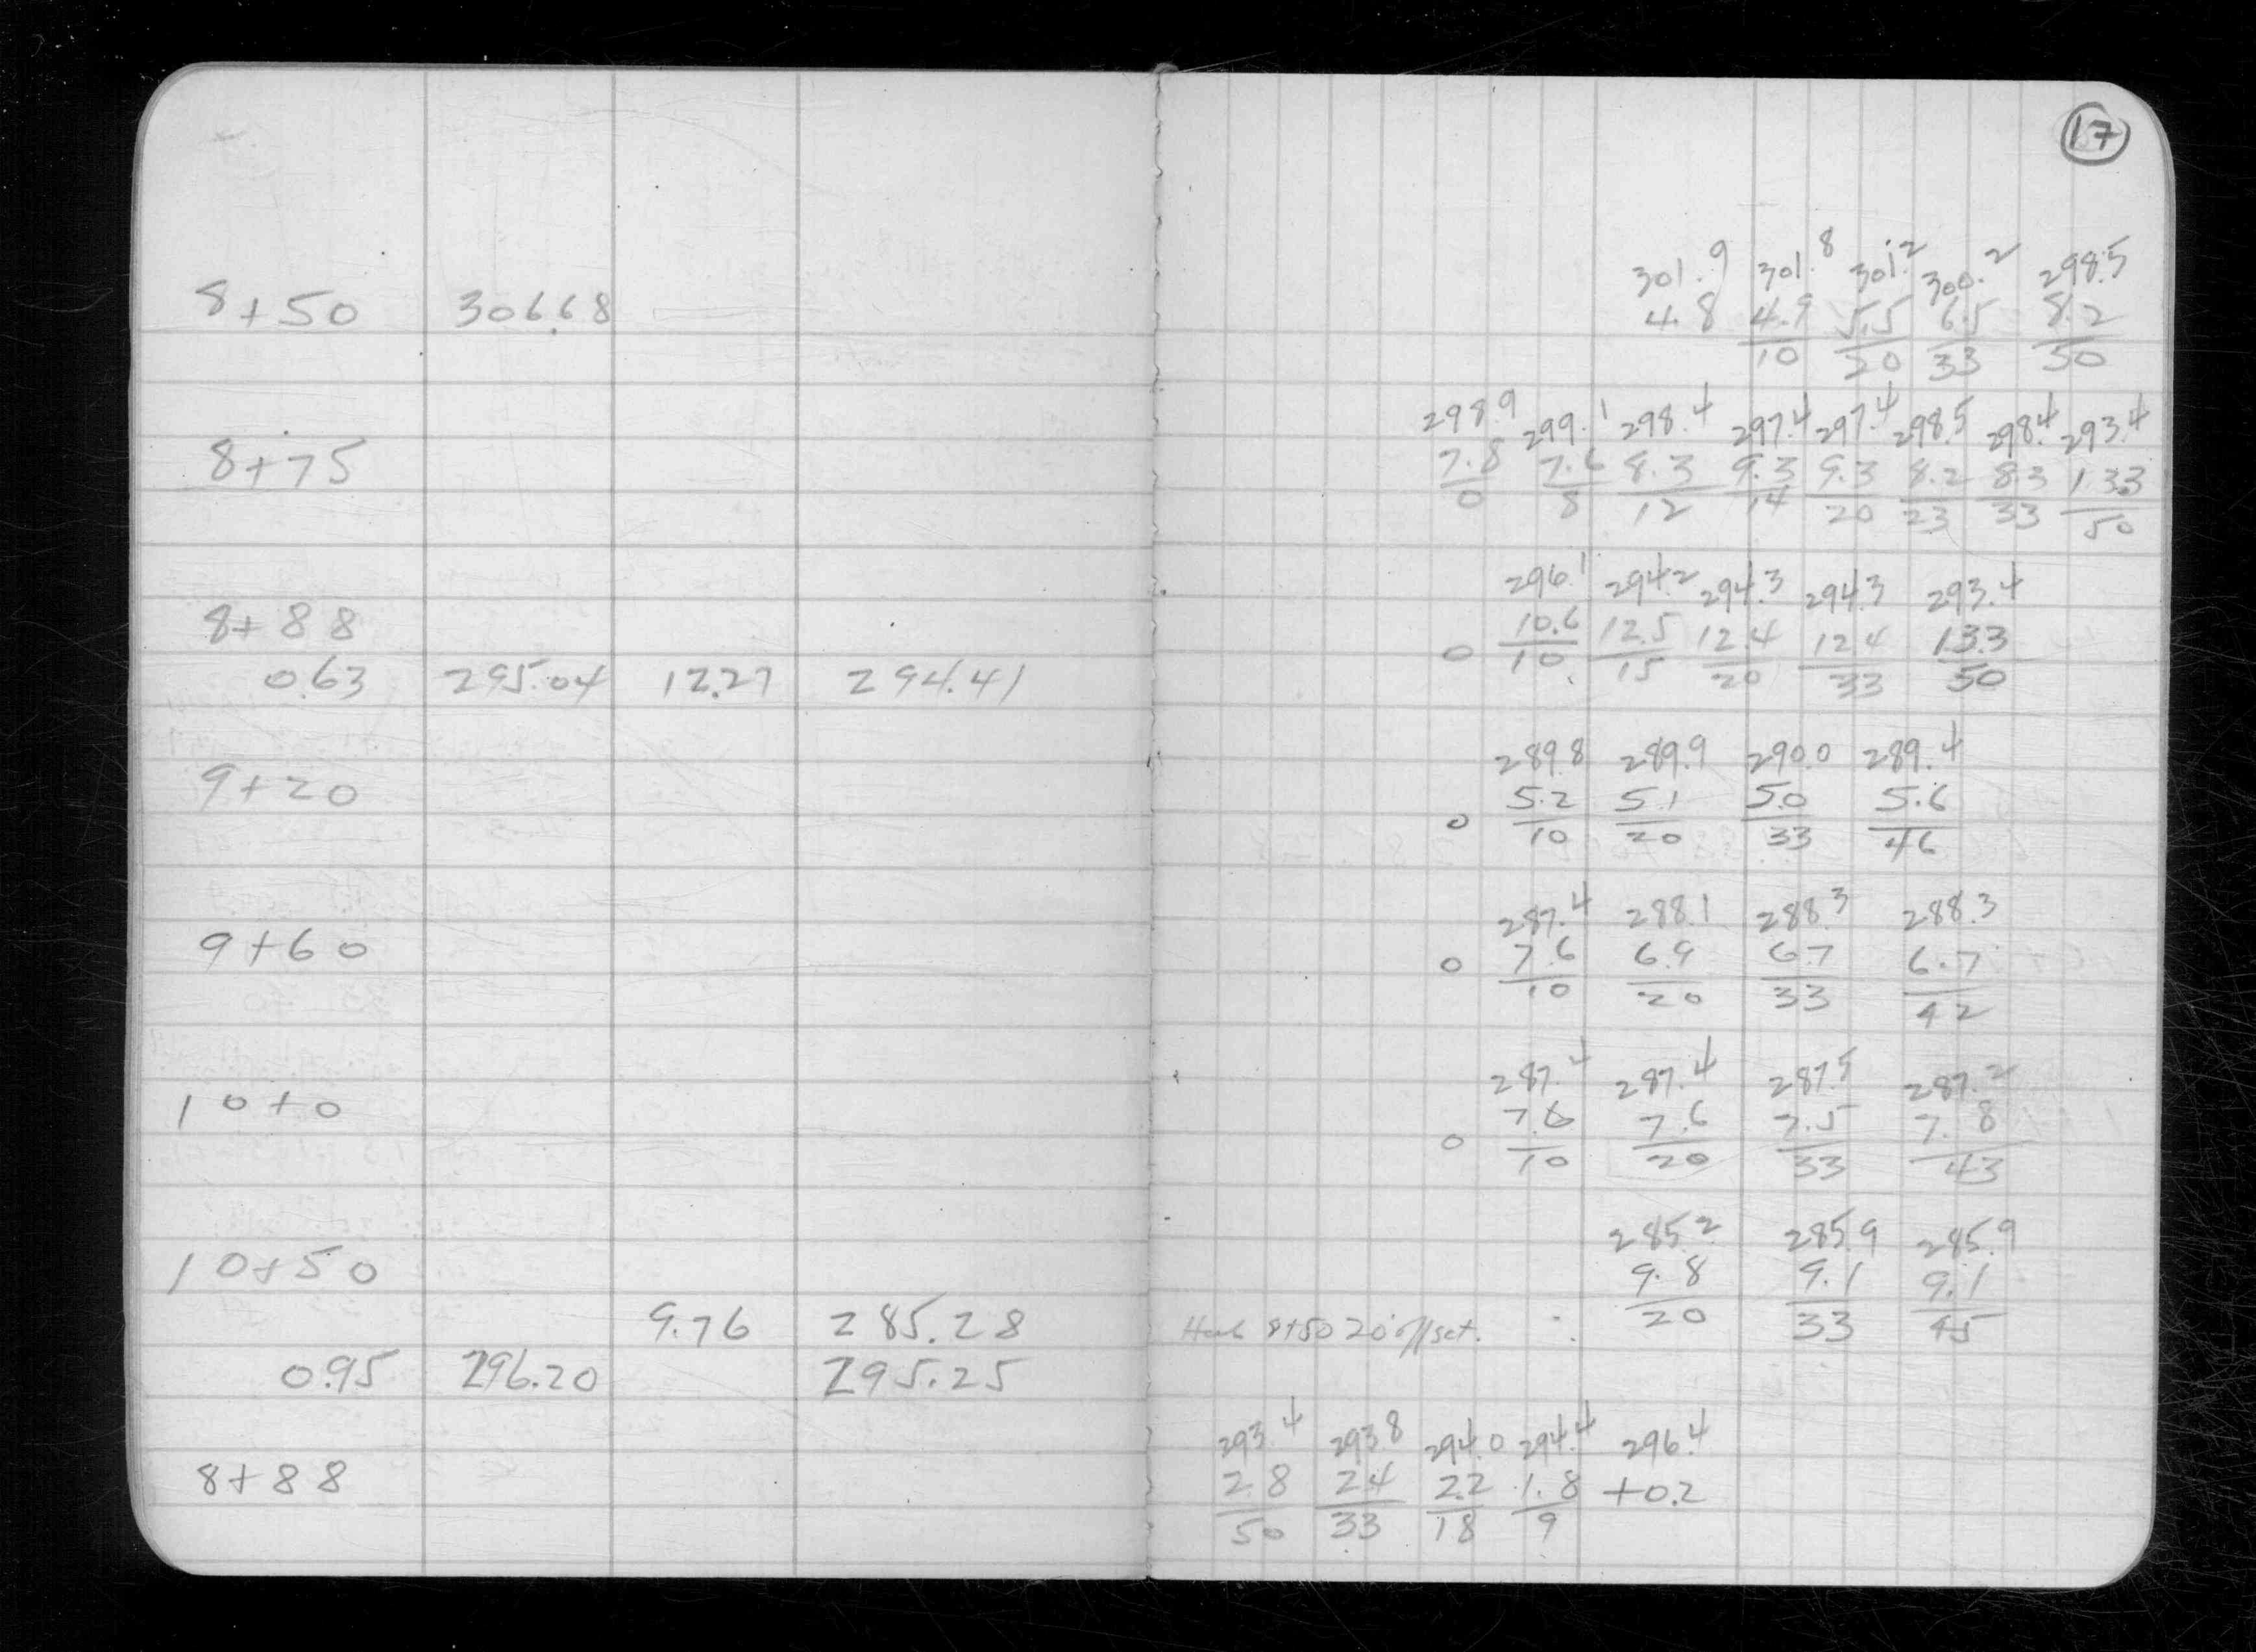 17
301.9 301.8 301.2 300.2 298.5
8+50 306.68 4.8 4.9 5.5 6.5 8.2
10 20 33 50
298.9 299.1 298.4 297.4 297.4 298.5 298.4 293.4
8+75 7.8 7.6 8.3 9.3 9.3 8.2 8.3 13.3
0 8 12 14 20 23 33 50
296.1 294.2 294.3 294.3 293.4
8+88 10.6 12.5 12.4 12.4 13.3
0.63 295.04 12.27 294.41 0 10 15 20 33 50
289.8 289.9 290.0 289.4
9+20 5.2 5.1 5.0 5.6
0 10 20 33 46
287.4 288.1 288.3 288.3
9+60 0 7.6 6.9 6.7 6.7
10 20 33 42
287.4 287.4 287.5 287.2
10+0 7.6 7.6 7.5 7.8
0 10 20 33 43
285.2 285.9 285.9
10+50 9.8 9.1 9.1
9.76 285.28 8+50 20' offset. 20 33 45
0.95 296.20 295.25
293.4 293.8 294.0 294.4 296.4
8+88 2.8 2.4 2.2 1.8 +0.2
50 33 18 9